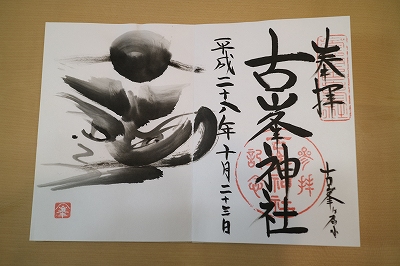 奉拝
古峯神社
平成二十八年十月二十三日
古峯ヶ原
参拝
記念